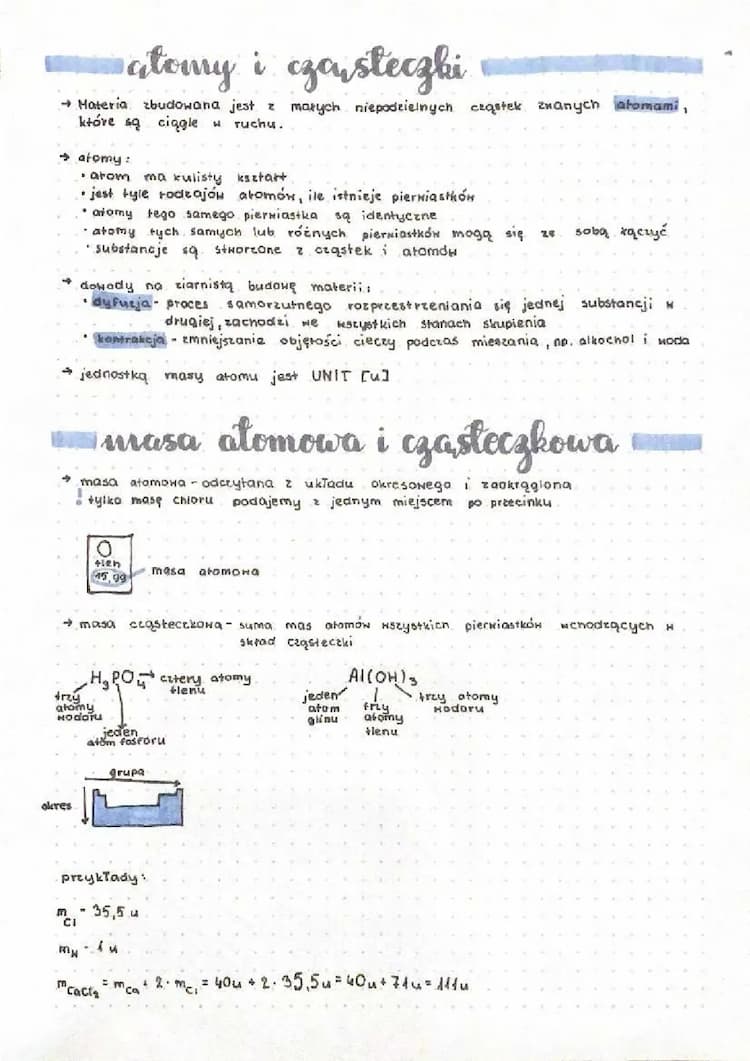 atomy i cząsteczki
→ Materia zbudowana jest z małych niepodzielnych cząstek zwanych atomami,
które są ciągle w ruchu.
→ atomy:
• atom ma kulisty kształt
• jest tyle rodzajów atomów, ile istnieje pierwiastków
• atomy tego samego pierwiastka są identyczne
• atomy tych samych lub różnych pierwiastków mogą się ze sobą łączyć
• substancje są stworzone z cząstek i atomów
→ dowody na ziarnistą budowę materii:
• dyfuzja - proces samorzutnego rozprzestrzeniania się jednej substancji w
drugiej, zachodzi we wszystkich stanach skupienia
• kontrakcja - zmniejszania objętości cieczy podczas mieszania, np. alkochol i woda
→ jednostką masy atomu jest UNIT [u]
masa atomowa i cząsteczkowa
→ masa atomowa - odczytana z układu okresowego i zaokrąglona
! tylko masę chloru podajemy z jednym miejscem po przecinku
O
tlen
15,99
masa atomowa
→ masa cząsteczkowa - suma mas atomów wszystkich pierwiastków wchodzących w
skład cząsteczki
H₃PO₄ → cztery atomy
tlenu
trzy
atomy
wodoru
jeden
atom fosforu
Al(OH)₃
jeden
atom
glinu
trzy
atomy
tlenu
trzy atomy
wodoru
grupa
okres
przykłady:
m Cl - 35,5 u
m H - 1 u
m CaCl₂ = m Ca + 2 · m Cl = 40u + 2 · 35,5u = 40u + 71u = 111u